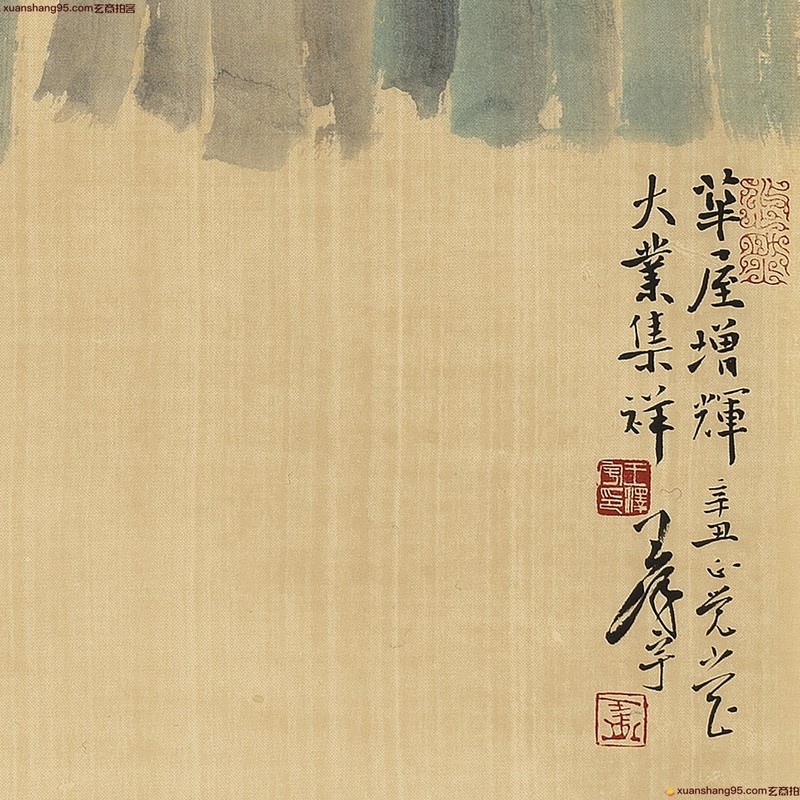 xuanshang95.com玄商拍客
華屋增輝 辛丑
大業集祥
王澤宇印
xuanshang95.com玄商拍